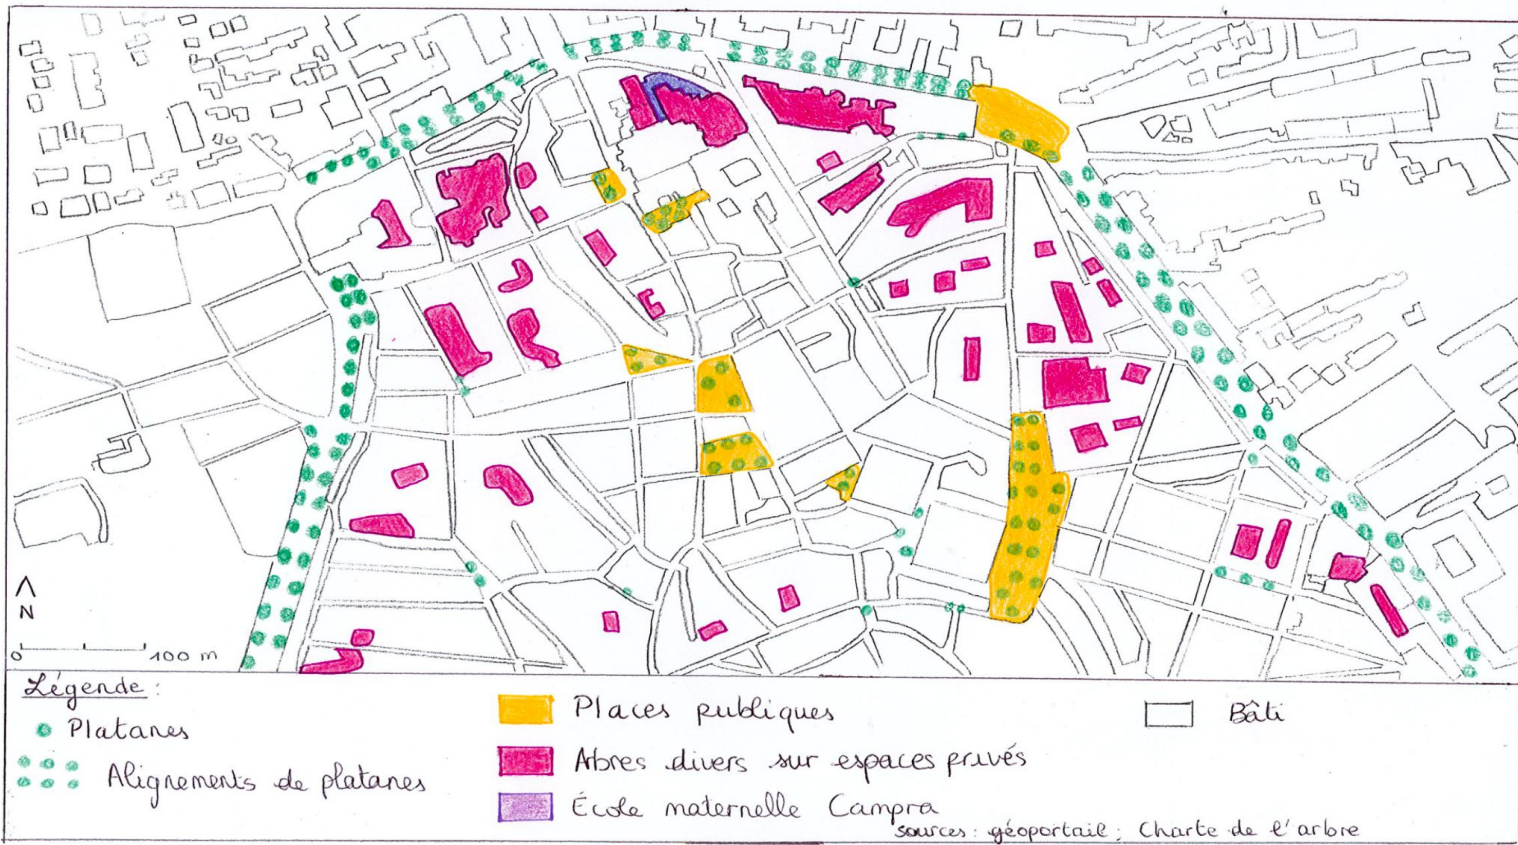 N
0 100 m
Légende :
Platanes
Alignements de platanes
Places publiques
Arbres divers sur espaces privés
École maternelle Campra
Bâti
sources : géoportail ; Charte de l'arbre